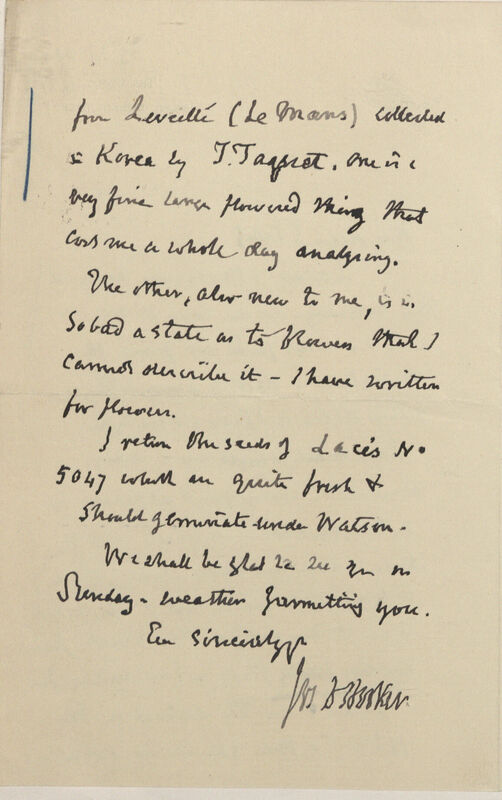 from Leveillé (Le Mans) collected
in Korea by T. Taquet. One is a
very fine large flowered thing that
cost me a whole day analysing.
The other, also new to me, is in
so bad a state as to flowers that I
cannot describe it – I have written
for flowers.
I return the seeds of Lace's No
5047 which are quite fresh &
should germinate under Watson.
We shall be glad to see you on
Sunday – weather permitting you.
Ever sincerely yrs
Jos D Hooker